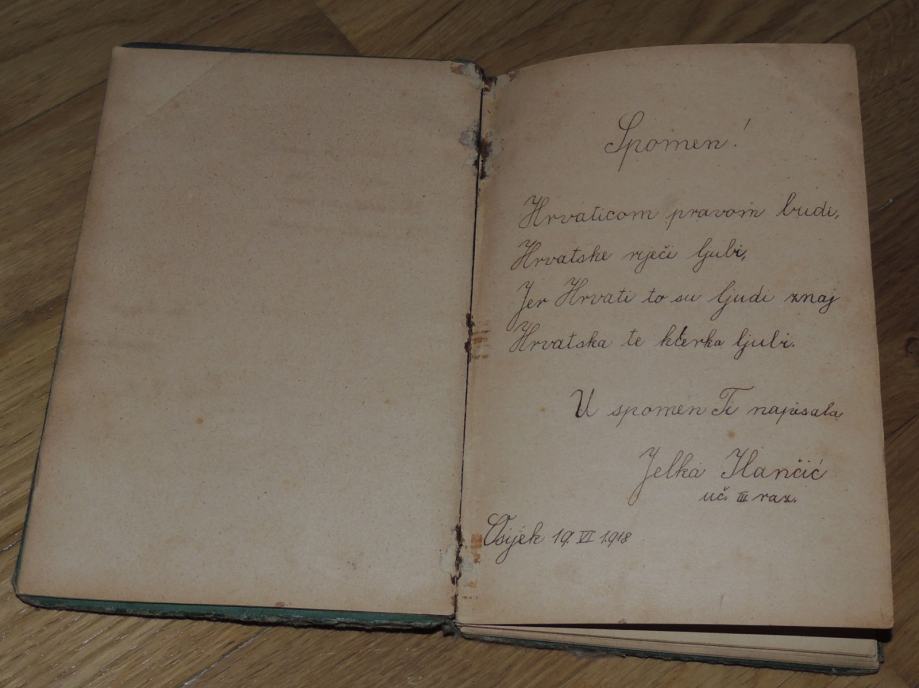 Spomen!
Hrvaticom pravom budi,
Hrvatske riječi ljubi,
Jer Hrvati to su ljudi znaj
Hrvatska te kćerka ljubi.
U spomen Ti napisala
Jelka Ilančić
uč. III raz.
Osijek 19. VI 1918